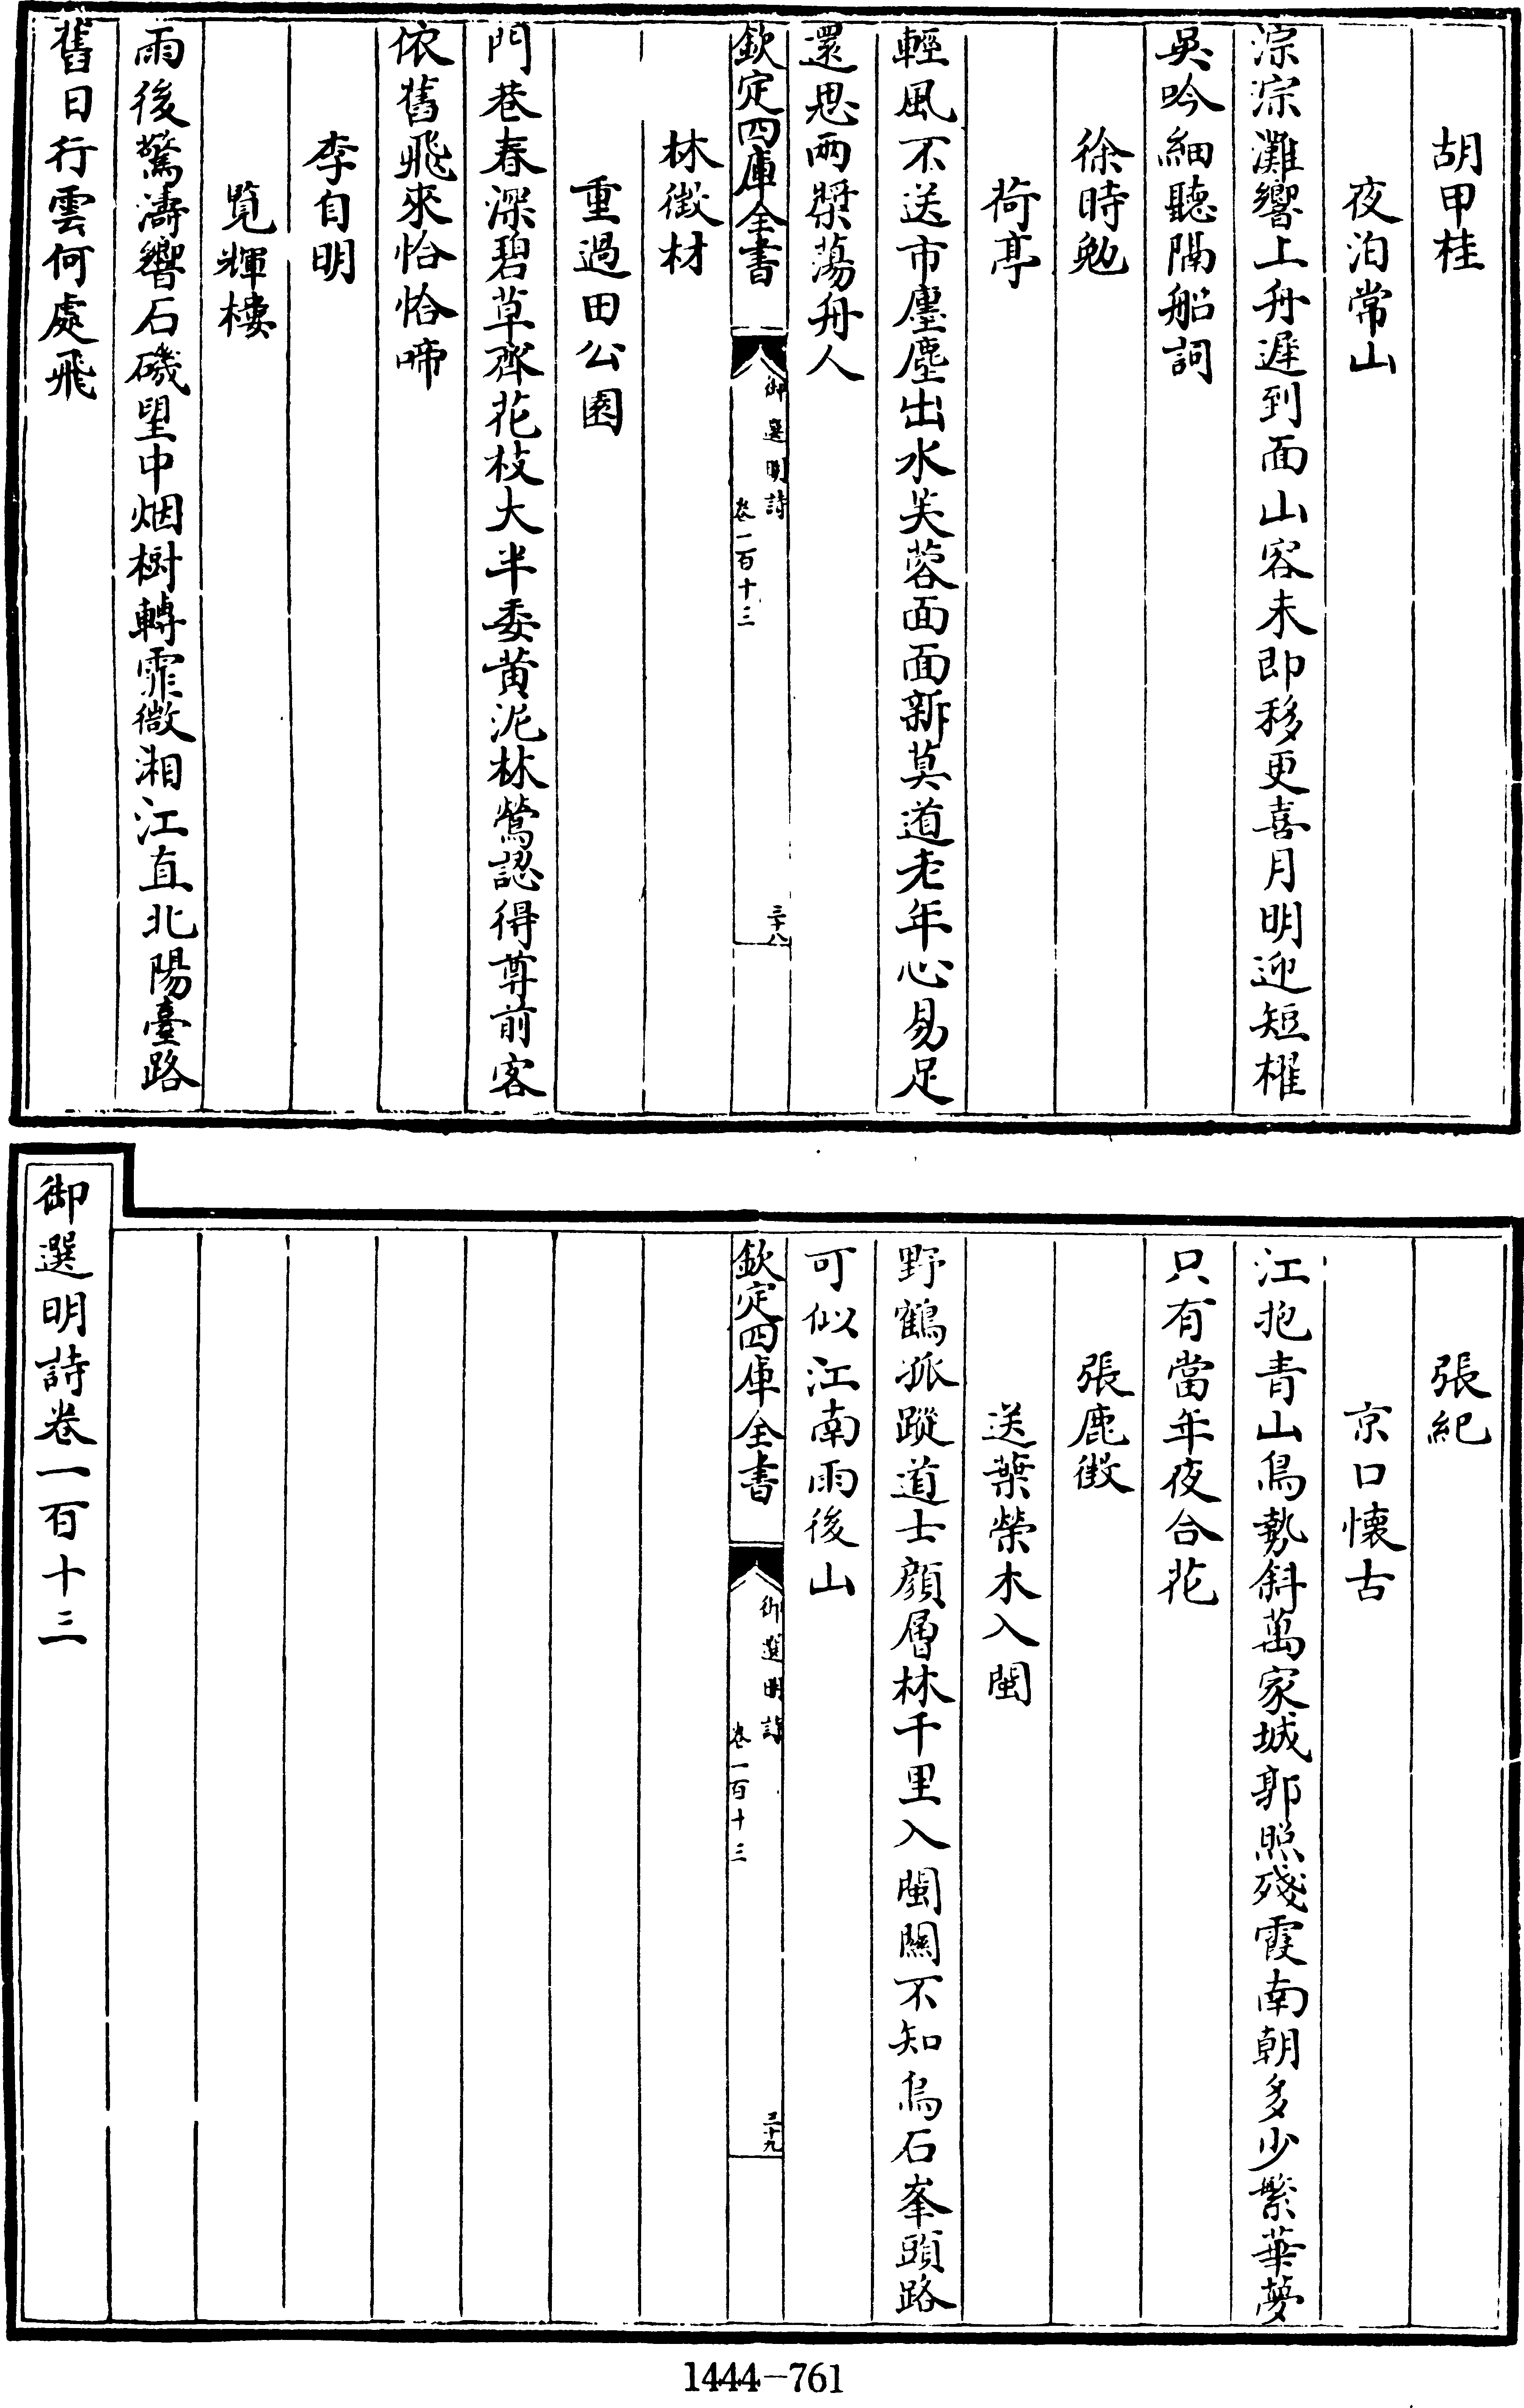 胡甲桂
夜泊常山
淙淙灘響上舟遲到面山容未即移更喜月明迎短櫂
吳吟細聽隔船詞
徐時勉
荷亭
輕風不送市廛塵出水芙蓉面面新莫道老年心易足
還思兩槳蕩舟人
欽定四庫全書
御選明詩
卷一百十三
三十八
林徵材
重過田公園
門巷春深碧草齊花枝大半委黄泥林鶯認得尊前客
依舊飛來恰恰啼
李自明
覽輝樓
雨後驚濤響石磯望中烟樹轉霏微湘江直北陽臺路
舊日行雲何處飛
張紀
京口懷古
江抱青山鳥勢斜萬家城郭照殘霞南朝多少繁華夢
只有當年夜合花
張鹿徵
送葉榮木入閩
野鶴孤蹤道士顔層林千里入閩關不知烏石峯頭路
可似江南雨後山
欽定四庫全書
御選明詩
卷一百十三
三十九
御選明詩卷一百十三
1444-761